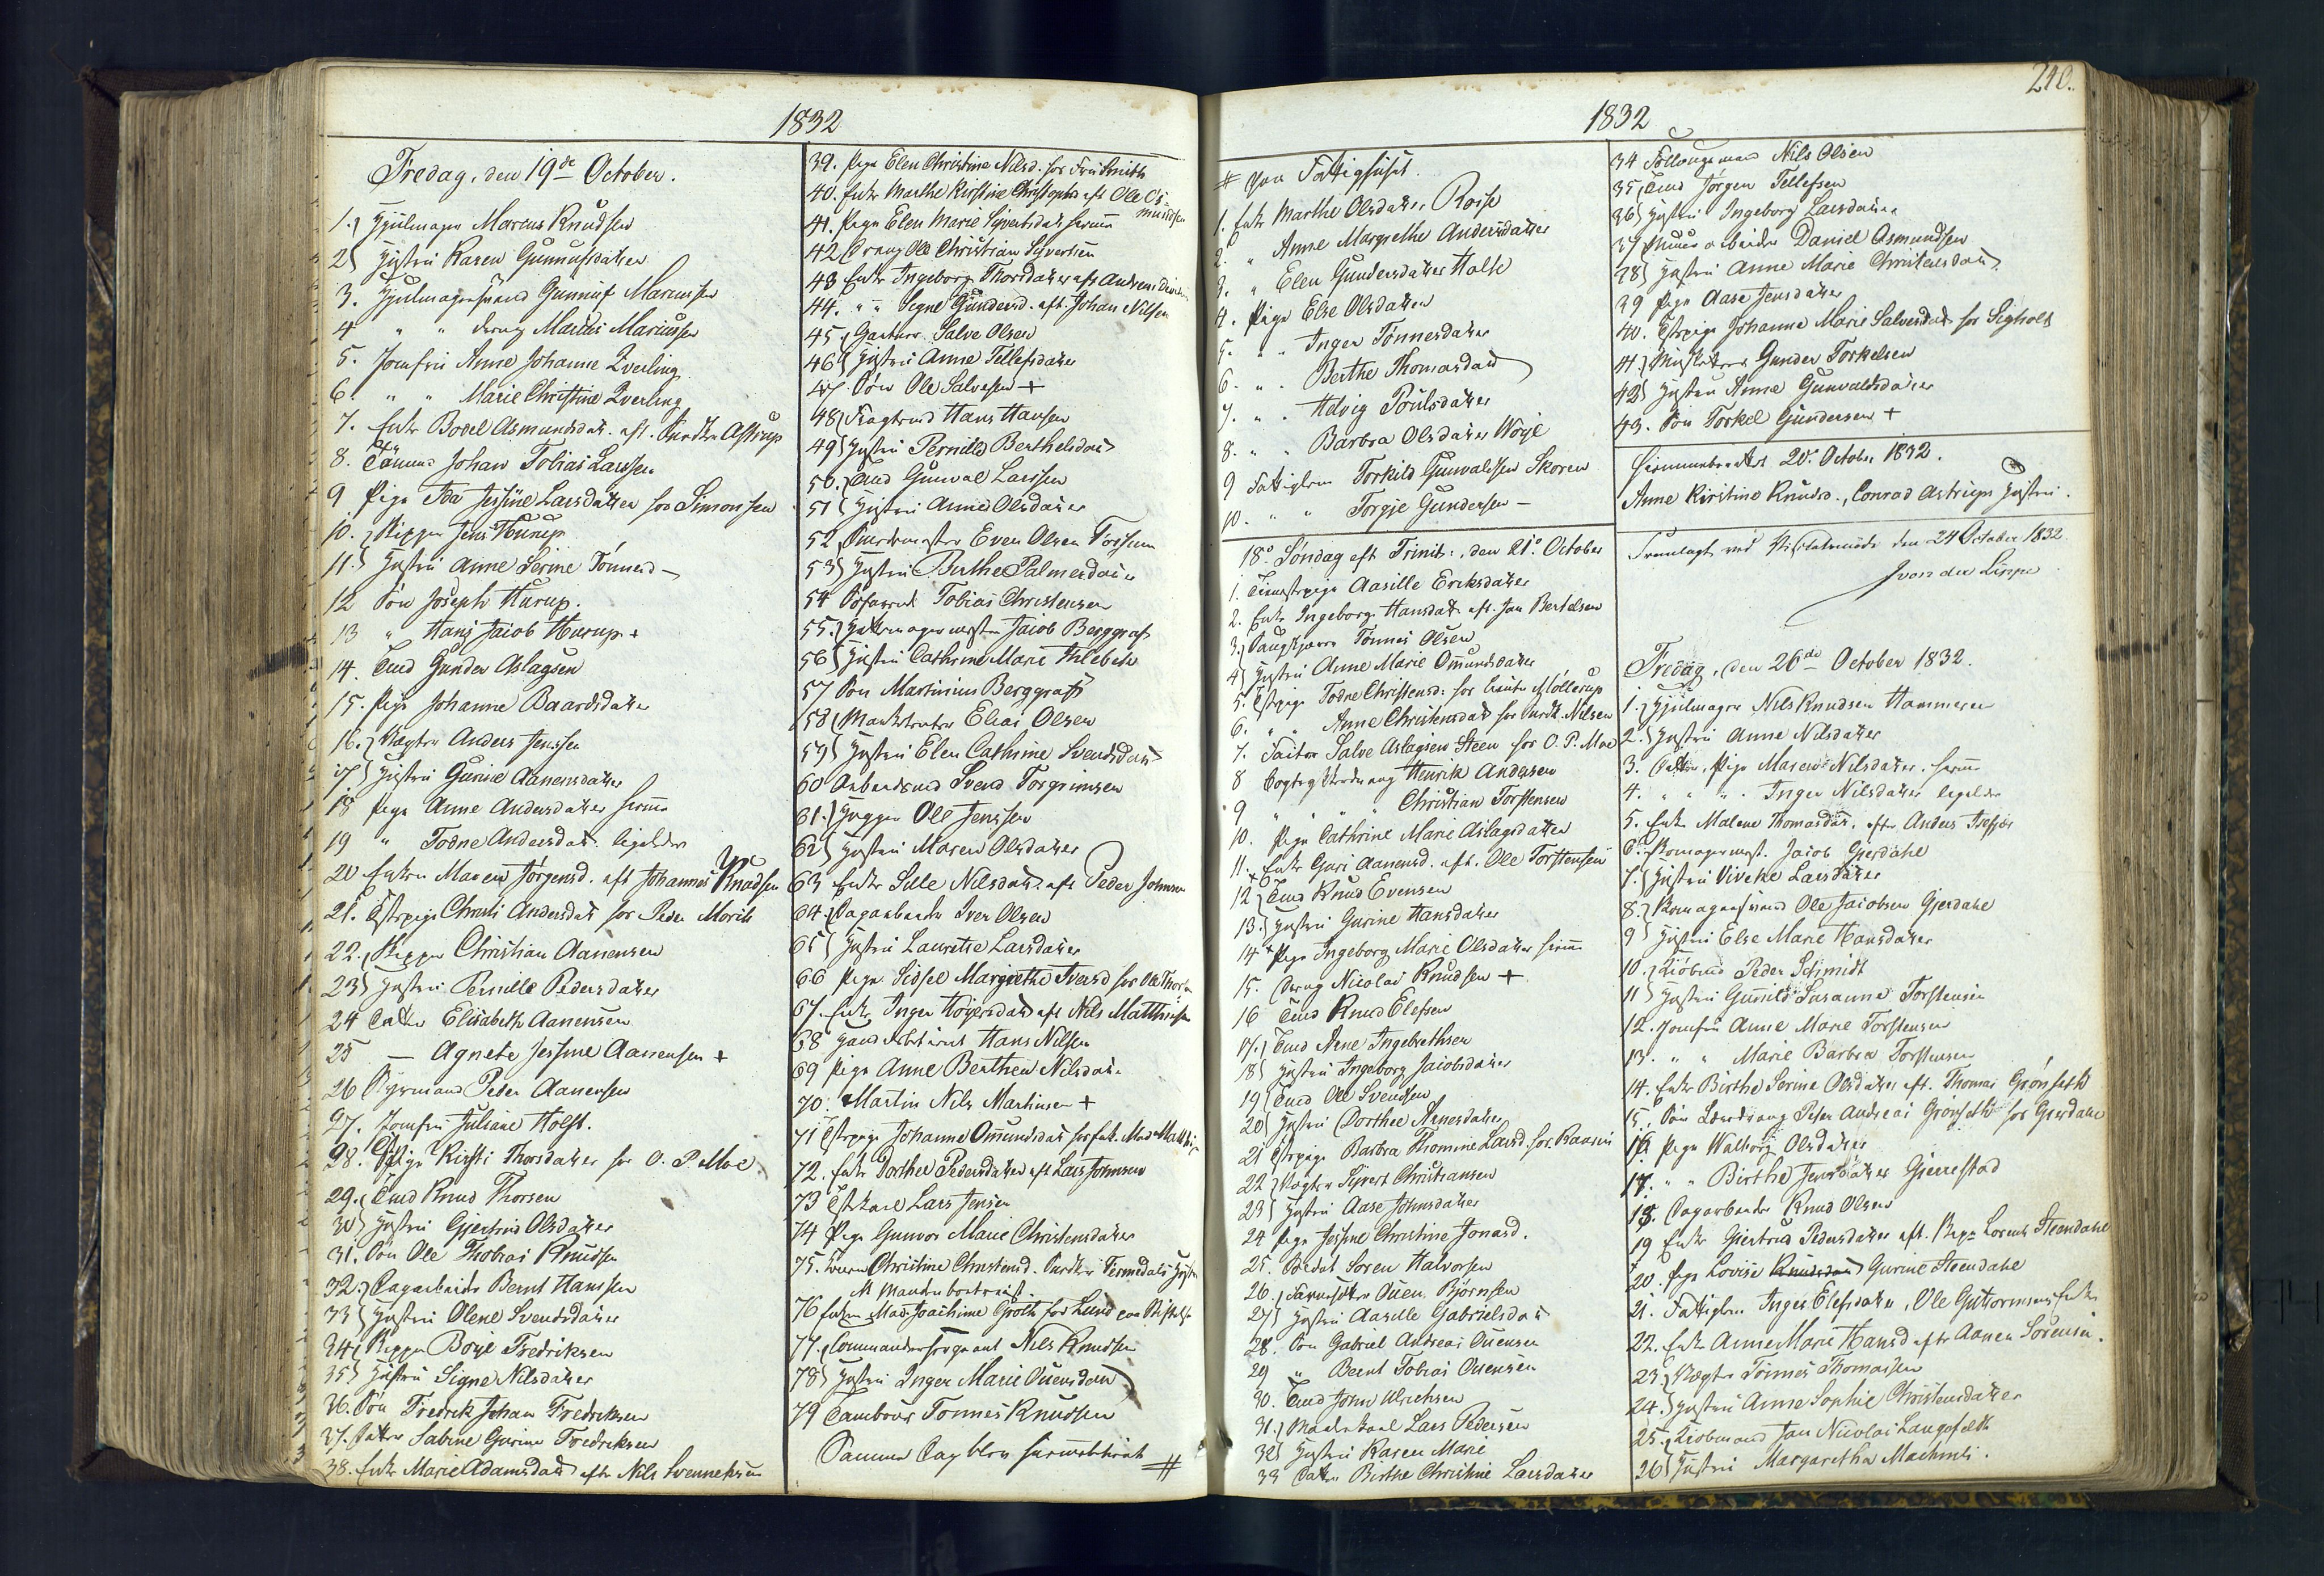 1832
Fredag, den 19de October.
1. Hjulmager Marcus Knudsen
2 Hustru Karen Gunnufsdatter
3. Hjulmagersvend Gunnuf Marcussen
4 " " dreng Marcus Marcussen
5. Jomfru Anne Johanne Qverling
6. " " Marie Christine Qverling
7. Enke Bodel Asmundsdat. eft. Astrup
8. Johan Tobias Larssen
9 Pige Ida Jessine Larsdatter hos Simonsen
10. Skipper Jens Hurup
11. Hustru Anne Serine Tønnesd
12 Søn Joseph Hurup.
13 " Hans Jacob Hurup +
14. Tmd Gunder Aslagsen
15. Pige Johanne Baardsdatter
16. Vægter Anders Jenssen
17 Hustru Gurine Aanensdatter
18 Pige Anne Andersdatter
19 " Todne Andersdat. ligeledes
20 Enken Maren Jørgensd. eft Johannes Knudsen
21. Tstpige Christi Andersdat hos Peder Morits
22. Skipper Christian Aanensen
23 Hustru Pernille Pedersdatter
24 Datter Elisabeth Aanensen
25 — Agnete Jessine Aanensen +
26 Styrmand Peder Aanensen
27. Jomfru Juliane Holst.
28. Tstpige Kirsti Thorsdatter hos O. P. Moe
29. Tmd Knud Thorsen
30 Hustru Gjertrud Olsdatter
31. Søn Ole Thobias Knudsen
32. Dagarbeider Bernt Hanssen
33 Hustru Olene Svendsdatter
34. Skipper Børje Fredriksen
35 Hustru Signe Nilsdatter
36. Søn Fredrik Johan Fredriksen
37. Datter Sabine Gurine Fredriksen
38. Enke Marie Adamsdat efter Nils Svenneksen
39. Pige Elen Christine Nilsd. hos Fru Smith
40. Enke Marthe Kirstine Christophersd eft Ole Osmundsen
41. Pige Elen Marie Syvertsdat
42 Dreng Ole Christian Syvertsen
43 Enke Ingeborg Thorsdatter eft Andreas
44. " " Segne Gundersd. eft. Johan Nilsen
45. Gartner Salve Olsen
46 Hustru Anne Tellefsdatter
47. Søn Ole Salvesen +
48 Hans Hansen
49 Hustru Pernille Berthelsdat
50. Tmd Gunval Larssen
51 Hustru Anne Olsdatter
52 Even Olsen Fossum
53 Hustru Berthe Palmesdatter
54 Tobias Christensen
55. Hattemagermester Jacob Berggraf
56 Hustru Cathrine Marie
57 Søn Martinius Berggraf
58 Elias Olsen
59 Hustru Elen Cathrine Svendsdat
60 Svend Torgrimsen
61. Ole Jenssen
62 Hustru Maren Olsdatter
63 Enke Sille Nilsdat. eft Peder Johnsen
64. Dagarbeider Iver Olsen
65 Hustru Lauretse Larsdatter
66 Pige Sidsel Margrethe Iversd hos Ole
67. Enke Inger Høyersdat eft Nils Matthiesen
68 Hans Nilsen
69 Pige Anne Berthea Nilsdat.
70. Martin Nils Martinsen +
71 Tstpige Johanne Omundsdat
72. Enke Dorthea Pedersdatter eft Lars Johnsen
73 Tstkarl Lars Jensen
74 Pige Gunvor Marie Christensdatter
75. Christine Christensd. Hustru
Manden bortreist.
76 Enken Mad. Joachime Groth fød Lund
77. Commandersergeant Nils Knudsen
78 Hustru Inger Marie Ouensdat
79 Tambour Tønnes Knudsen
Samme Dag blev #
240.
1832
# paa Fattighuset.
1. Enke Marthe Olsdatter Rosse
2. " Anne Margrethe Andersdatter
3. " Elen Gundersdatter Holte
4. Pige Else Olsdatter
5. " " Inger Tønnesdatter
6. " " Berthe Thomasdat
7. " " Helvig Poulsdatter
8. " " Barbra Olsdatter Wøye
9 Fattiglem Torkild Gunvaldsen Skoren
10. " " Torgje Gundersen —
18de Søndag eft Trinit: den 21de October
1. Tienestepige Aasille Eriksdatter
2. Enke Ingeborg Hansdat eft. Jan Bertelsen
3. Tønnes Olsen
4 Hustru Anne Marie Omundsdatter
5. Tstpige Todne Christensd. hos Møllerup
6. " " Anne Christensdat hos Nilsen
7. Salve Aslagsen Steen hos O. P. Moe
8 Henrik Andersen
9 " " Christian Torstensen
10. Pige Cathrine Marie Aslagsdatter
11. + Enke Guri Aanensd. eft. Ole Torstensen
12 Tmd Knud Evensen
13. Hustru Gurine Hansdatter
14 + Pige Ingeborg Marie Olsdatter
15. Dreng Nicolai Knudsen +
16 Tmd Knud Elefsen
17. Tmd Arne Ingebrethsen
18 Hustru Ingeborg Jacobsdatter
19 Tmd Ole Svendsen
20 Hustru Dorthe Arnesdatter
21 Tstpige Barbra Thomine Larsd. hos
22 Vægter Sivert Christiansen
23 Hustru Aase Johnsdatter
24 Pige Jessine Christine Jonasd.
25. Soldat Søren Halvorsen
26. Ouen Bjørnsen
27 Hustru Aasille Gabrielsdat
28. Søn Gabriel Andreas Ouensen
29 " Bernt Tobias Ouensen
30. Tmd John Ulrichsen
31. Lars Pedersen
32 Hustru Karen Marie
33 Datter Birthe Christine Larsdatter
34 Nils Olsen
35 Tmd Jørgen Tellefsen
36 Hustru Ingeborg Larsdatter
37 arbeider Daniel Osmundsen
38 Hustru Anne Marie Christensdat
39 Pige Aase Jensdatter
40. Tstpige Johanne Marie Salvesdat hos Sigholt
41. Gunder Torkelsen
42 Hustru Anne Gunvaldsdatter
43. Søn Torkel Gundersen +
20de October 1832.
Anne Kirstine Knudsd., Conrad Astrups Hustru.
Fremlagt ved den 24 October 1832
J von der Lippe
Fredag, den 26de October 1832.
1. Hjulmager Nils Knudsen Hammeren
2. Hustru Anne Nilsdatter
3. Datter, Pige Maren Nilsdatter
4. " " " Inger Nilsdatter ligeledes
5. Enke Malene Thomasdat. efter Anders
6. Skomagermest. Jacob Gjerdahl
7. Hustru Viveke Larsdatter
8. Skomagersvend Ole Jacobsen Gjerdahl
9 Hustru Else Marie Hansdatter
10. Kiøbmd Peder Schmidt
11 Hustru Gunild Susanne Torstensen
12. Jomfru Anne Marie Torstensen
13. " " Marie Barbra Torstensen
14. Enke Birthe Serine Olsdatter eft. Thomas Grønseth
15. Søn Peter Andreas Grønseth hos Gjerdahl
16. Pige Walborg Olsdatter
17. " " Birthe Jensdatter Gjerrestad
18. Dagarbeider Knud Olsen
19 Enke Giertrud Pedersdatter eft. Skipper Lorents Steendahl
20. Pige Lovise Gurine Steendahl
21. Fattiglem Inger Elefsdatter, Ole Guttormsens Enke
22. Enke Anne Marie Hansd efter Aanen Sørensen.
23. Vægter Tønnes Thomassen
24. Hustru Anne Sophie Christensdatter
25. Kiøbmand Jan Nicolai Langefeldt
26 Hustru Margaretha